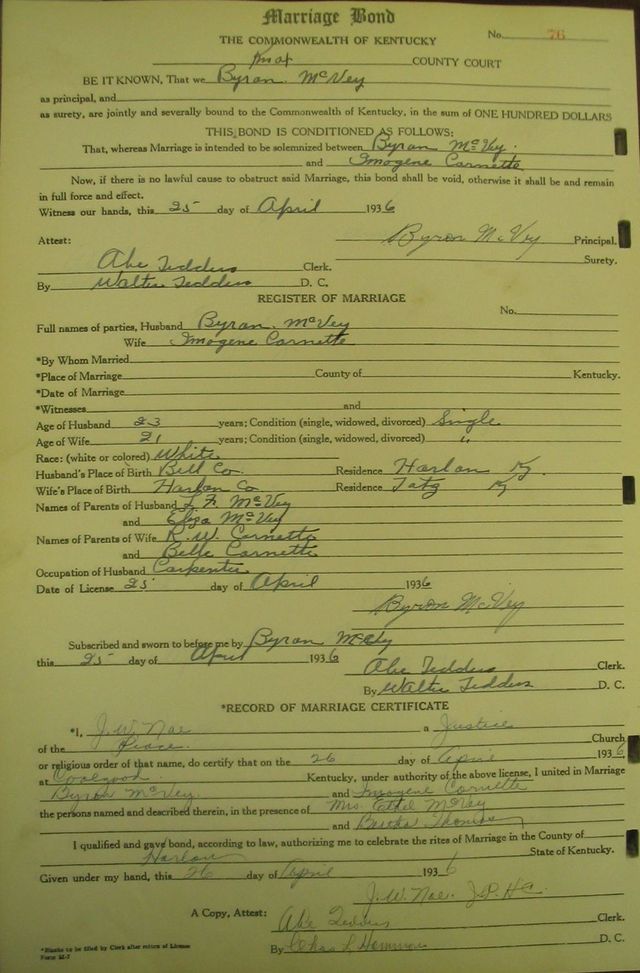 Marriage Bond
No. 76
THE COMMONWEALTH OF KENTUCKY
Knox COUNTY COURT
BE IT KNOWN, That we Byron McVey
as principal, and
as surety, are jointly and severally bound to the Commonwealth of Kentucky, in the sum of ONE HUNDRED DOLLARS
THIS BOND IS CONDITIONED AS FOLLOWS:
That, whereas Marriage is intended to be solemnized between Byron McVey
and Imogene Cornette
Now, if there is no lawful cause to obstruct said Marriage, this bond shall be void, otherwise it shall be and remain
in full force and effect.
Witness our hands, this 25 day of April 1936
Byron McVey Principal.
Attest: Surety.
Abe Tedders Clerk.
By Walter Tedders D. C.
REGISTER OF MARRIAGE
No.
Full names of parties, Husband Byron McVey
Wife Imogene Cornette
*By Whom Married
*Place of Marriage County of Kentucky.
*Date of Marriage
*Witnesses and
Age of Husband 23 years; Condition (single, widowed, divorced) Single
Age of Wife 21 years; Condition (single, widowed, divorced) "
Race: (white or colored) White
Husband's Place of Birth Bell Co. Residence Harlan Ky.
Wife's Place of Birth Harlan Co Residence Ky
Names of Parents of Husband L. F. McVey
and Eliza McVey
Names of Parents of Wife R. W. Cornette
and Belle Cornette
Occupation of Husband Carpenter
Date of License 25 day of April 1936
Byron McVey
Subscribed and sworn to before me by Byron McVey
this 25 day of April 1936
Abe Tedders Clerk.
By Walter Tedders D. C.
*RECORD OF MARRIAGE CERTIFICATE
*I, J. W. Noe a Justice
of the Peace Church
or religious order of that name, do certify that on the 26 day of April 1936
at Coalgood Kentucky, under authority of the above license, I united in Marriage
Byron McVey and Imogene Cornette
the persons named and described therein, in the presence of Mrs. Ethel McVey
and Bertha Thomas
I qualified and gave bond, according to law, authorizing me to celebrate the rites of Marriage in the County of
Harlan State of Kentucky.
Given under my hand, this 26 day of April 1936
J. W. Noe. J. P. H C.
A Copy, Attest: Abe Tedders Clerk.
By Chas L Hammons D. C.
*Blanks to be filled by Clerk after return of License